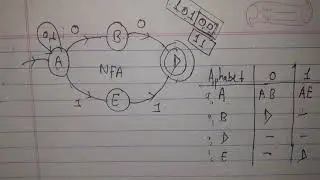 0 B 0
0,1
A NFA D
1 E 1
101 00
11
Alphabet 0 1
A AB AE
B D -
D - -
E - D